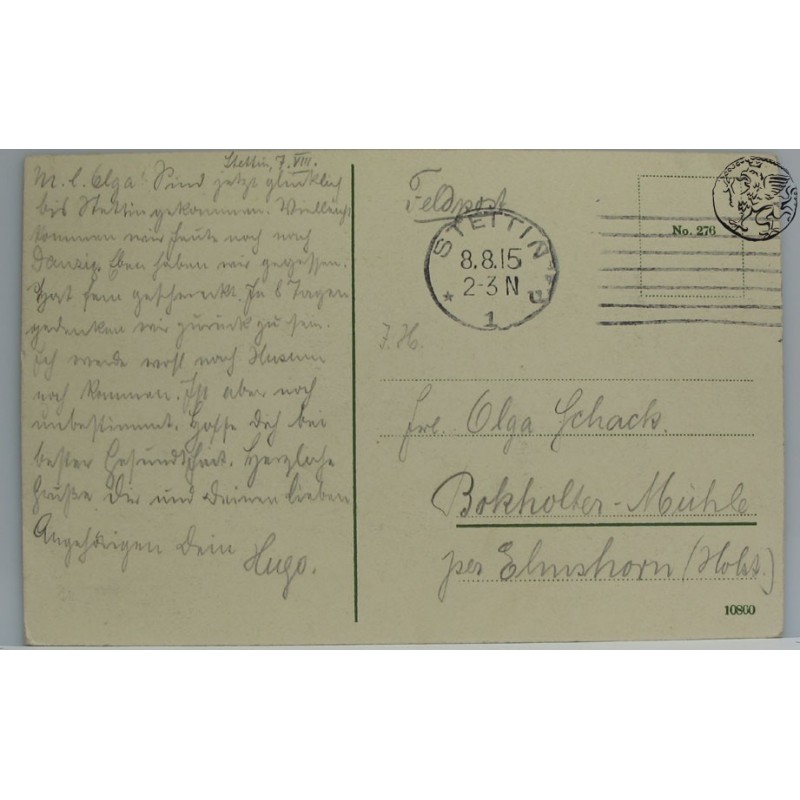 Stettin, 7. VIII.
M. l. Olga! Sind jetzt glücklich
bis Stettin gekommen. Vielleicht
kommen wir heute noch nach
Danzig. Eben haben wir gegessen.
Hat fein geschmeckt. In 8 Tagen
gedenken wir zurück zu sein.
Ich werde wohl nach Husum
noch kommen. Ist aber noch
unbestimmt. Hoffe Dich bei
bester Gesundheit. Herzliche
Grüße Dir und Deinen lieben
Angehörigen Dein
Hugo.
Feldpost
STETTIN
8.8.15
2-3 N
* 1
No. 276
Frl. Olga Schack.
Bokholter-Mühle
per Elmshorn (Holst.)
10860